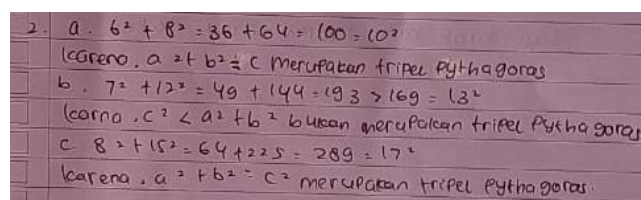 2. a. 6² + 8² = 36 + 64 = 100 = 10²
Kareno, a ² + b² = c merupakan tripel Pythagoras
b. 7² + 12² = 49 + 144 = 193 > 169 = 13²
Karno, c² < a² + b² bukan merupakan tripel Pythagoras
c. 8² + 15² = 64 + 225 = 289 = 17²
Karena, a² + b² = c² merupakan tripel Pythagoras.